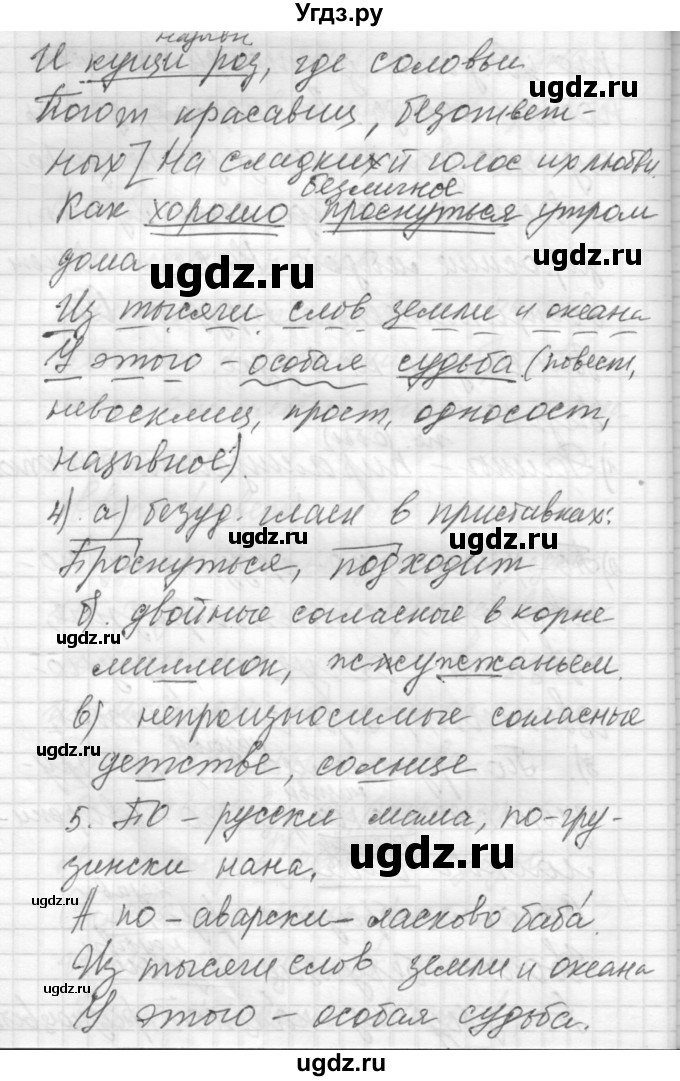 Угдз.ру
назывн
И кущи роз, где соловьи
Поют красавиц, безответ-
ных] На сладкихй голос их любви.
безличное
Как хорошо проснуться утром
дома
ugdz.ru ugdz.ru
Из тысячи слов земли и океана
У этого – особая судьба (повест,
невосклиц, прост, односост,
назывное).
4) а) безуд. гласн в приставках:
ugdz.ru
Проснуться, подходит
б). двойные согласные в корне
ugdz.ru
миллион, жжужжаньем.
в) непроизносимые согласные
ugdz.ru
детстве, солнце
5. По – русски мама, по-гру-
зински нана,
ugdz.ru
ugdz.ru
А по – аварски – ласково баба́.
Из тысячи слов земли и океана
ugdz.ru
У этого – особая судьба.
ugdz.ru